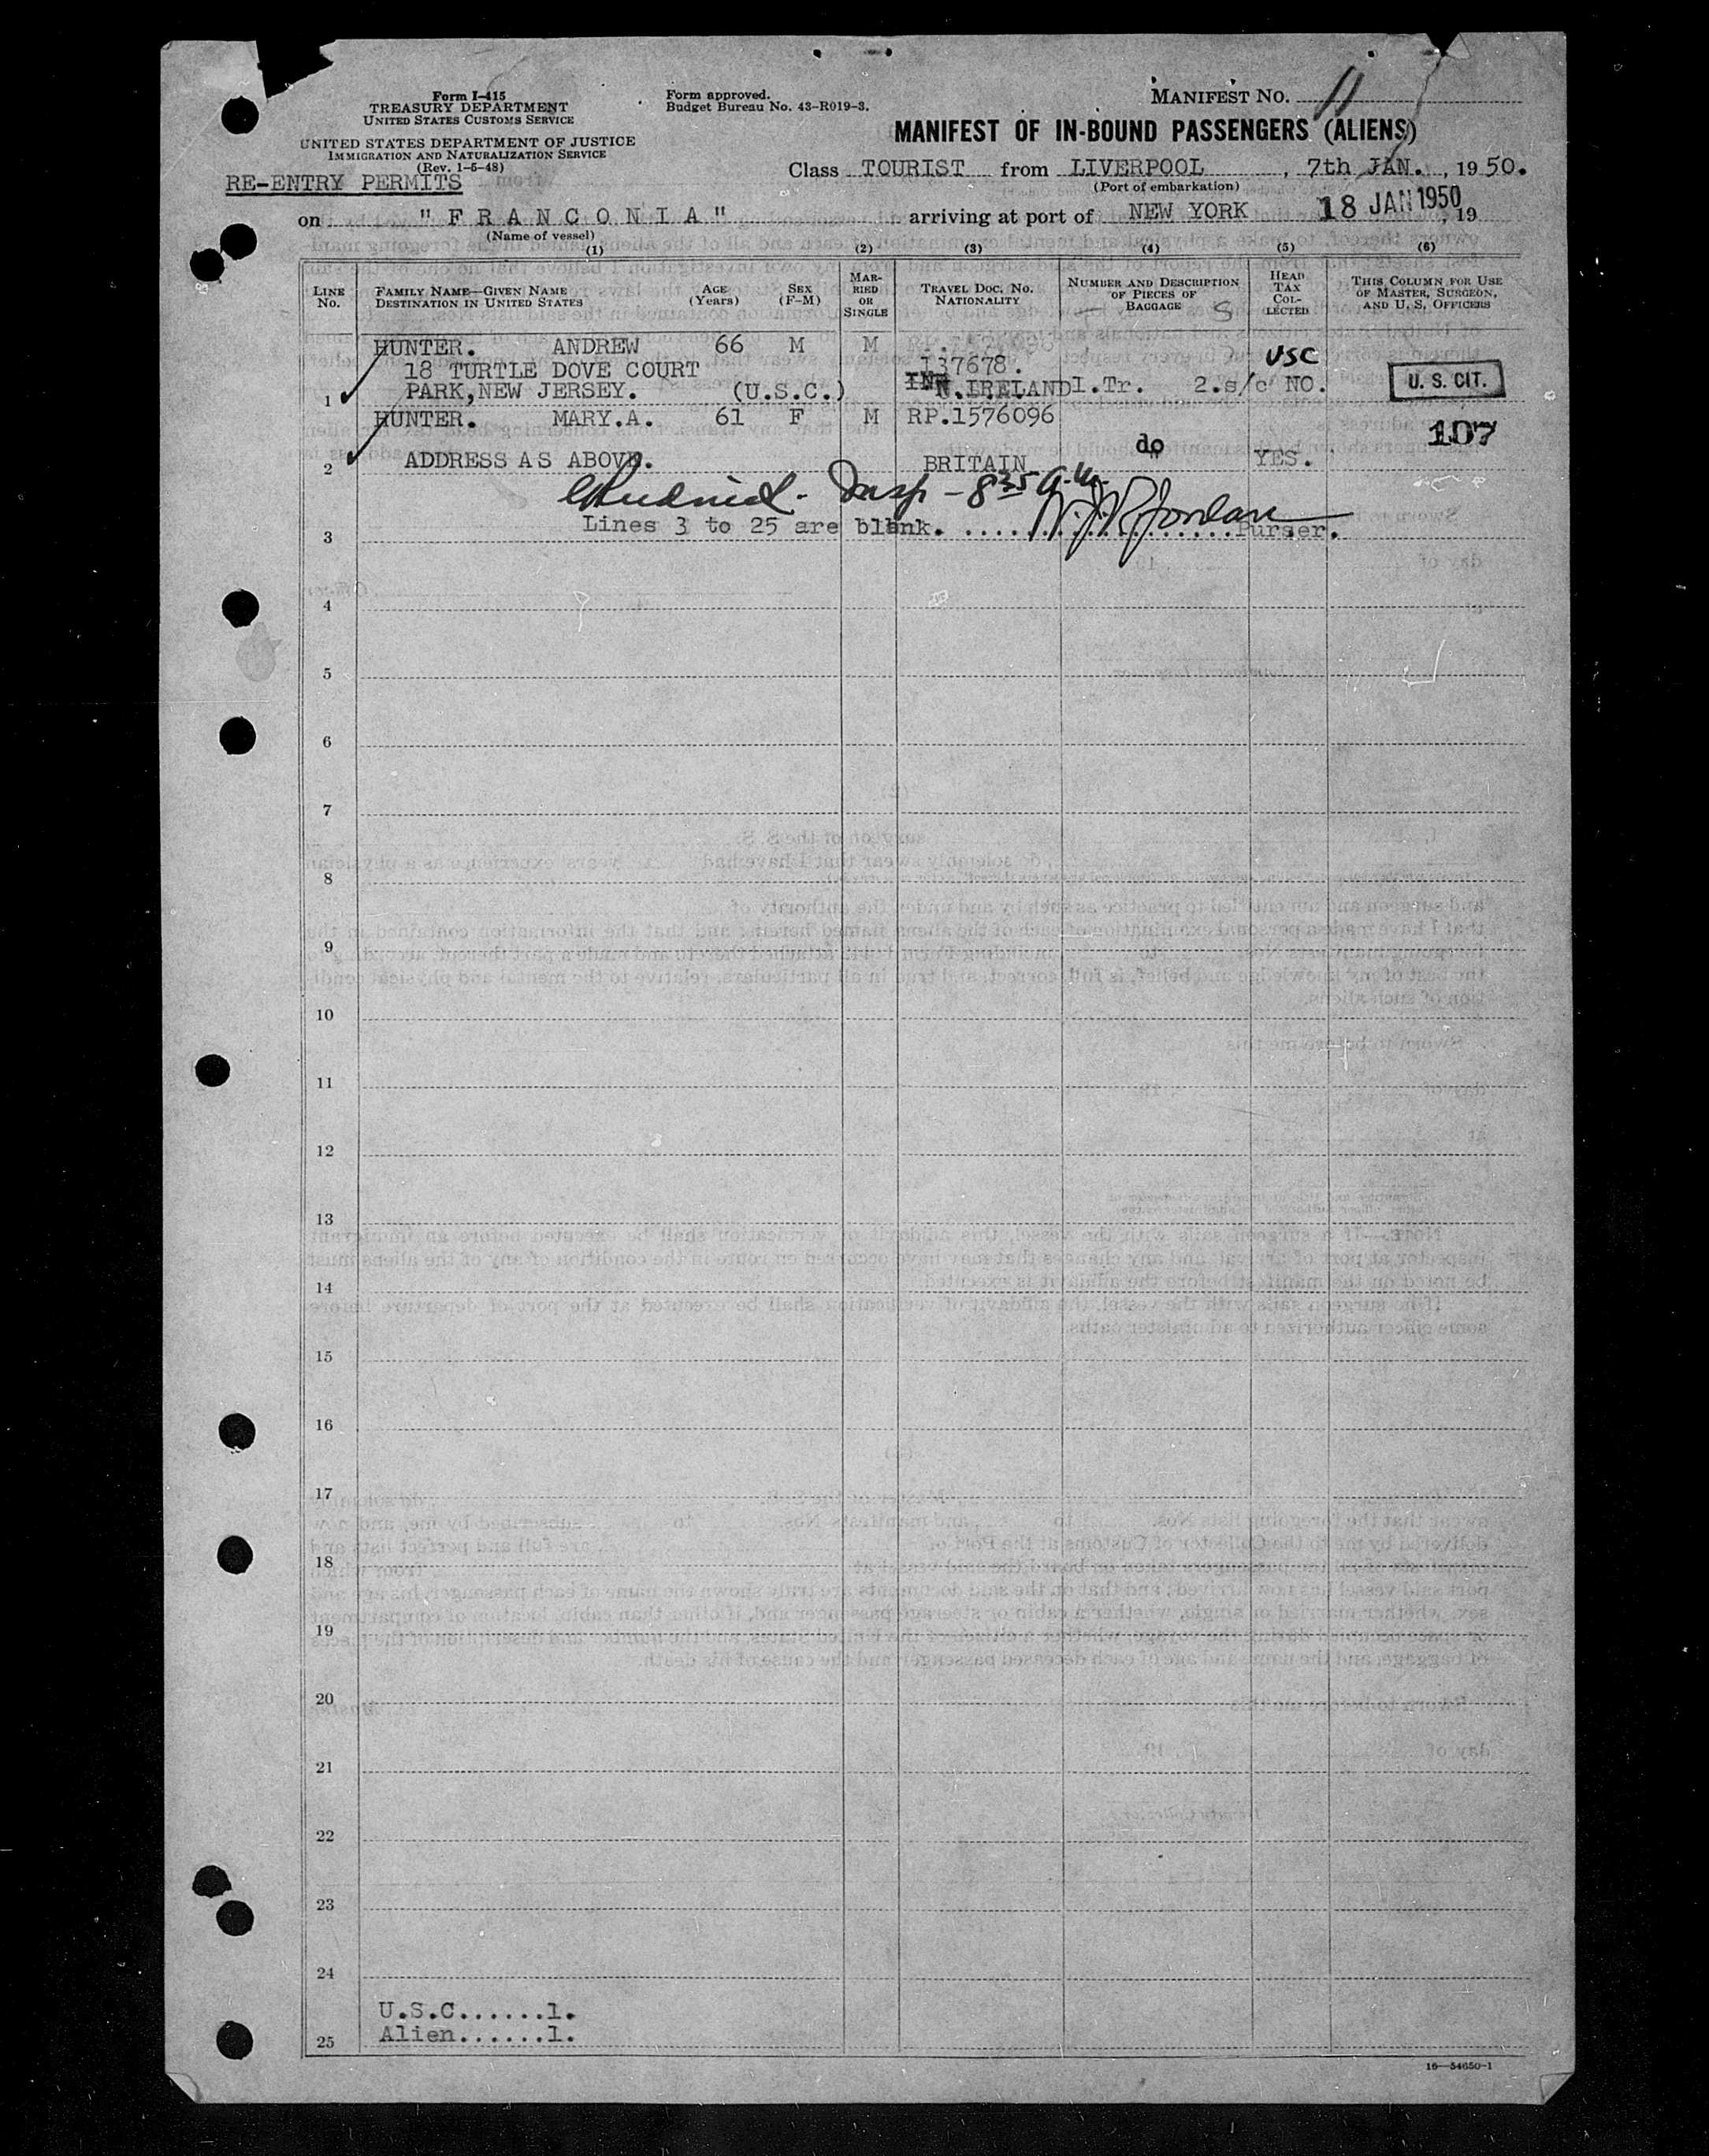 Form I-415
TREASURY DEPARTMENT
UNITED STATES CUSTOMS SERVICE
UNITED STATES DEPARTMENT OF JUSTICE
IMMIGRATION AND NATURALIZATION SERVICE
(Rev. 1-5-48)
RE-ENTRY PERMITS
Form approved.
Budget Bureau No. 43-R019-3.
MANIFEST NO. 11
MANIFEST OF IN-BOUND PASSENGERS (ALIENS)
Class TOURIST from LIVERPOOL, 7th JAN., 1950.
(Port of embarkation)
on "FRANCONIA" arriving at port of NEW YORK 18 JAN 1950, 19
(Name of vessel)
(1) (2) (3) (4) (5) (6)
LINE No. FAMILY NAME—GIVEN NAME DESTINATION IN UNITED STATES AGE (Years) SEX (F-M) MARRIED OR SINGLE TRAVEL DOC. NO. NATIONALITY NUMBER AND DESCRIPTION OF PIECES OF BAGGAGE HEAD TAX COLLECTED THIS COLUMN FOR USE OF MASTER, SURGEON, AND U. S. OFFICERS
S
HUNTER. ANDREW 66 M M
18 TURTLE DOVE COURT 137678. USC
1 PARK,NEW JERSEY. (U.S.C.) N.IRELAND 1.Tr. 2.s/c NO. U. S. CIT.
HUNTER. MARY.A. 61 F M RP.1576096 107
do
2 ADDRESS AS ABOVE. BRITAIN " YES.
Insp - 8 35 a.m.
3 Lines 3 to 25 are blank. Purser.
4
5
6
7
8
9
10
11
12
13
14
15
16
17
18
19
20
21
22
23
24
U.S.C......1.
25 Alien......1.
16—54650-1